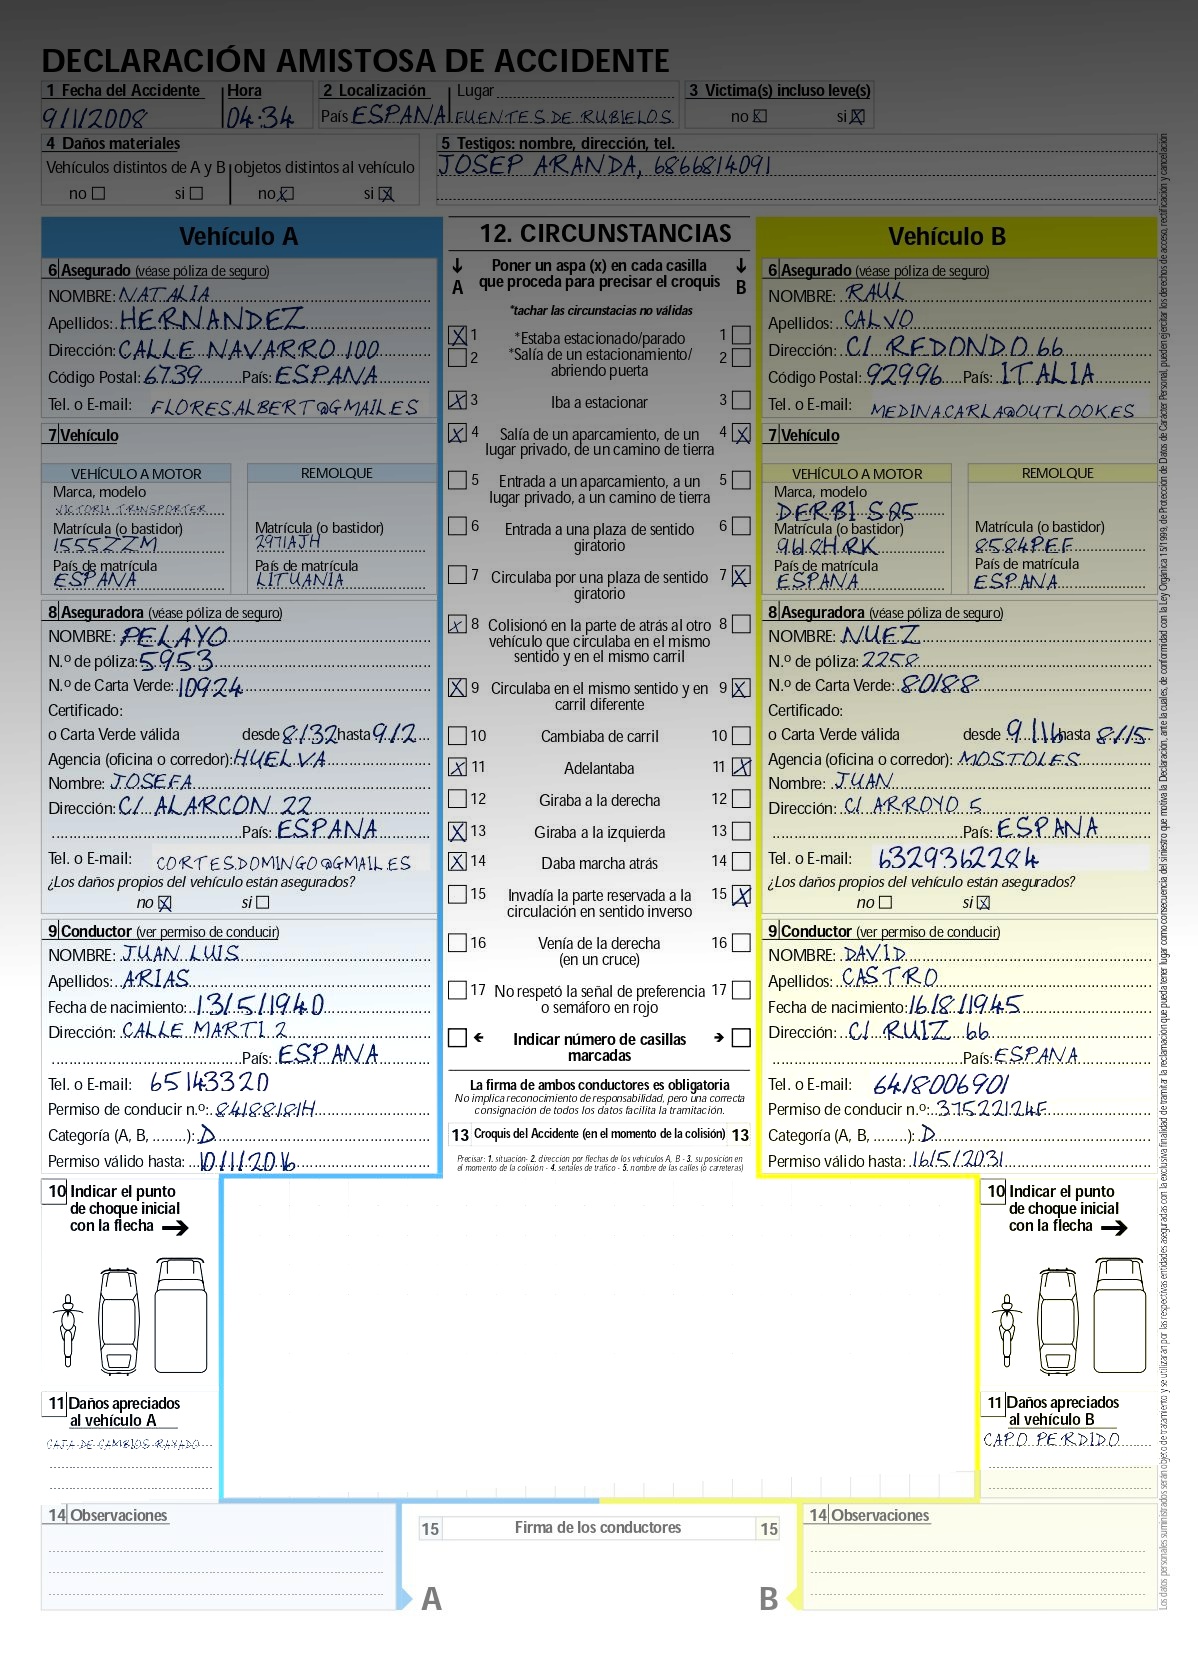 DECLARACIÓN AMISTOSA DE ACCIDENTE
1 Fecha del Accidente Hora 2 Localización Lugar 3 Victima(s) incluso leve(s)
9/1/2008 04:34 País ESPANA FUENTES DE RUBIELOS no si
4 Daños materiales
Vehículos distintos de A y B objetos distintos al vehículo
no si no si
5 Testigos: nombre, dirección, tel.
JOSEP ARANDA, 6866814091
Vehículo A
6 Asegurado (véase póliza de seguro)
NOMBRE: NATALIA
Apellidos: HERNANDEZ
Dirección: CALLE NAVARRO 100
Código Postal: 6739 País: ESPANA
Tel. o E-mail: FLORES.ALBERT@GMAIL.ES
7 Vehículo
VEHÍCULO A MOTOR REMOLQUE
Marca, modelo
VICTORIA TRANSPORTER
Matrícula (o bastidor) Matrícula (o bastidor)
1555ZZM 2971AJH
País de matrícula País de matrícula
ESPANA LITUANIA
8 Aseguradora (véase póliza de seguro)
NOMBRE: PELAYO
N.º de póliza: 5953
N.º de Carta Verde: 10924
Certificado:
o Carta Verde válida desde 8/32 hasta 9/2
Agencia (oficina o corredor): HUELVA
Nombre: JOSEFA
Dirección: C/ ALARCON 22
País: ESPANA
Tel. o E-mail: CORTES.DOMINGO@GMAIL.ES
¿Los daños propios del vehículo están asegurados?
no si
9 Conductor (ver permiso de conducir)
NOMBRE: JUAN LUIS
Apellidos: ARIAS
Fecha de nacimiento: 13/5/1940
Dirección: CALLE MARTI 2
País: ESPANA
Tel. o E-mail: 65143320
Permiso de conducir n.º: 84188181H
Categoría (A, B, ........): D
Permiso válido hasta: 10/1/2016
12. CIRCUNSTANCIAS
A Poner un aspa (x) en cada casilla B
que proceda para precisar el croquis
*tachar las circunstacias no válidas
1 *Estaba estacionado/parado 1
2 *Salía de un estacionamiento/ 2
abriendo puerta
3 Iba a estacionar 3
4 Salía de un aparcamiento, de un 4
lugar privado, de un camino de tierra
5 Entrada a un aparcamiento, a un 5
lugar privado, a un camino de tierra
6 Entrada a una plaza de sentido 6
giratorio
7 Circulaba por una plaza de sentido 7
giratorio
8 Colisionó en la parte de atrás al otro 8
vehículo que circulaba en el mismo
sentido y en el mismo carril
9 Circulaba en el mismo sentido y en 9
carril diferente
10 Cambiaba de carril 10
11 Adelantaba 11
12 Giraba a la derecha 12
13 Giraba a la izquierda 13
14 Daba marcha atrás 14
15 Invadía la parte reservada a la 15
circulación en sentido inverso
16 Venía de la derecha 16
(en un cruce)
17 No respetó la señal de preferencia 17
o semáforo en rojo
Indicar número de casillas
marcadas
La firma de ambos conductores es obligatoria
No implica reconocimiento de responsabilidad, pero una correcta
consignación de todos los datos facilita la tramitación.
13 Croquis del Accidente (en el momento de la colisión) 13
Precisar: 1. situación- 2. dirección por flechas de los vehículos A, B - 3. su posición en
el momento de la colisión - 4. señales de tráfico - 5. nombre de las calles (o carreteras)
Vehículo B
6 Asegurado (véase póliza de seguro)
NOMBRE: RAUL
Apellidos: CALVO
Dirección: C/ REDONDO 66
Código Postal: 92996 País: ITALIA
Tel. o E-mail: MEDINA.CARLA@OUTLOOK.ES
7 Vehículo
VEHÍCULO A MOTOR REMOLQUE
Marca, modelo
DERBI S25
Matrícula (o bastidor) Matrícula (o bastidor)
9618HRK 8584PEF
País de matrícula País de matrícula
ESPANA ESPANA
8 Aseguradora (véase póliza de seguro)
NOMBRE: NUEZ
N.º de póliza: 2258
N.º de Carta Verde: 80188
Certificado:
o Carta Verde válida desde 9/16 hasta 8/15
Agencia (oficina o corredor): MOSTOLES
Nombre: JUAN
Dirección: C/ ARROYO 5
País: ESPANA
Tel. o E-mail: 6329362284
¿Los daños propios del vehículo están asegurados?
no si
9 Conductor (ver permiso de conducir)
NOMBRE: DAVID
Apellidos: CASTRO
Fecha de nacimiento: 16/8/1945
Dirección: C/ RUIZ 66
País: ESPANA
Tel. o E-mail: 6418006901
Permiso de conducir n.º: 37522124F
Categoría (A, B, ........): D
Permiso válido hasta: 16/5/2031
10 Indicar el punto
de choque inicial
con la flecha
11 Daños apreciados
al vehículo A
CAJA DE CAMBIOS RAYADO
10 Indicar el punto
de choque inicial
con la flecha
11 Daños apreciados
al vehículo B
CAPO PERDIDO
14 Observaciones
15 Firma de los conductores 15
A B
14 Observaciones
Los datos personales suministrados serán objeto de tratamiento y se utilizaran por las respectivas entidades aseguradas con la exclusiva finalidad de tramitar la reclamación que pueda tener lugar como consecuencia del siniestro que motiva la Declaración, ante la cuales, de conformidad con la Ley Orgánica 15/1999, de Protección de Datos de Carácter Personal, pueden ejercitar los derechos de acceso, rectificación y cancelación